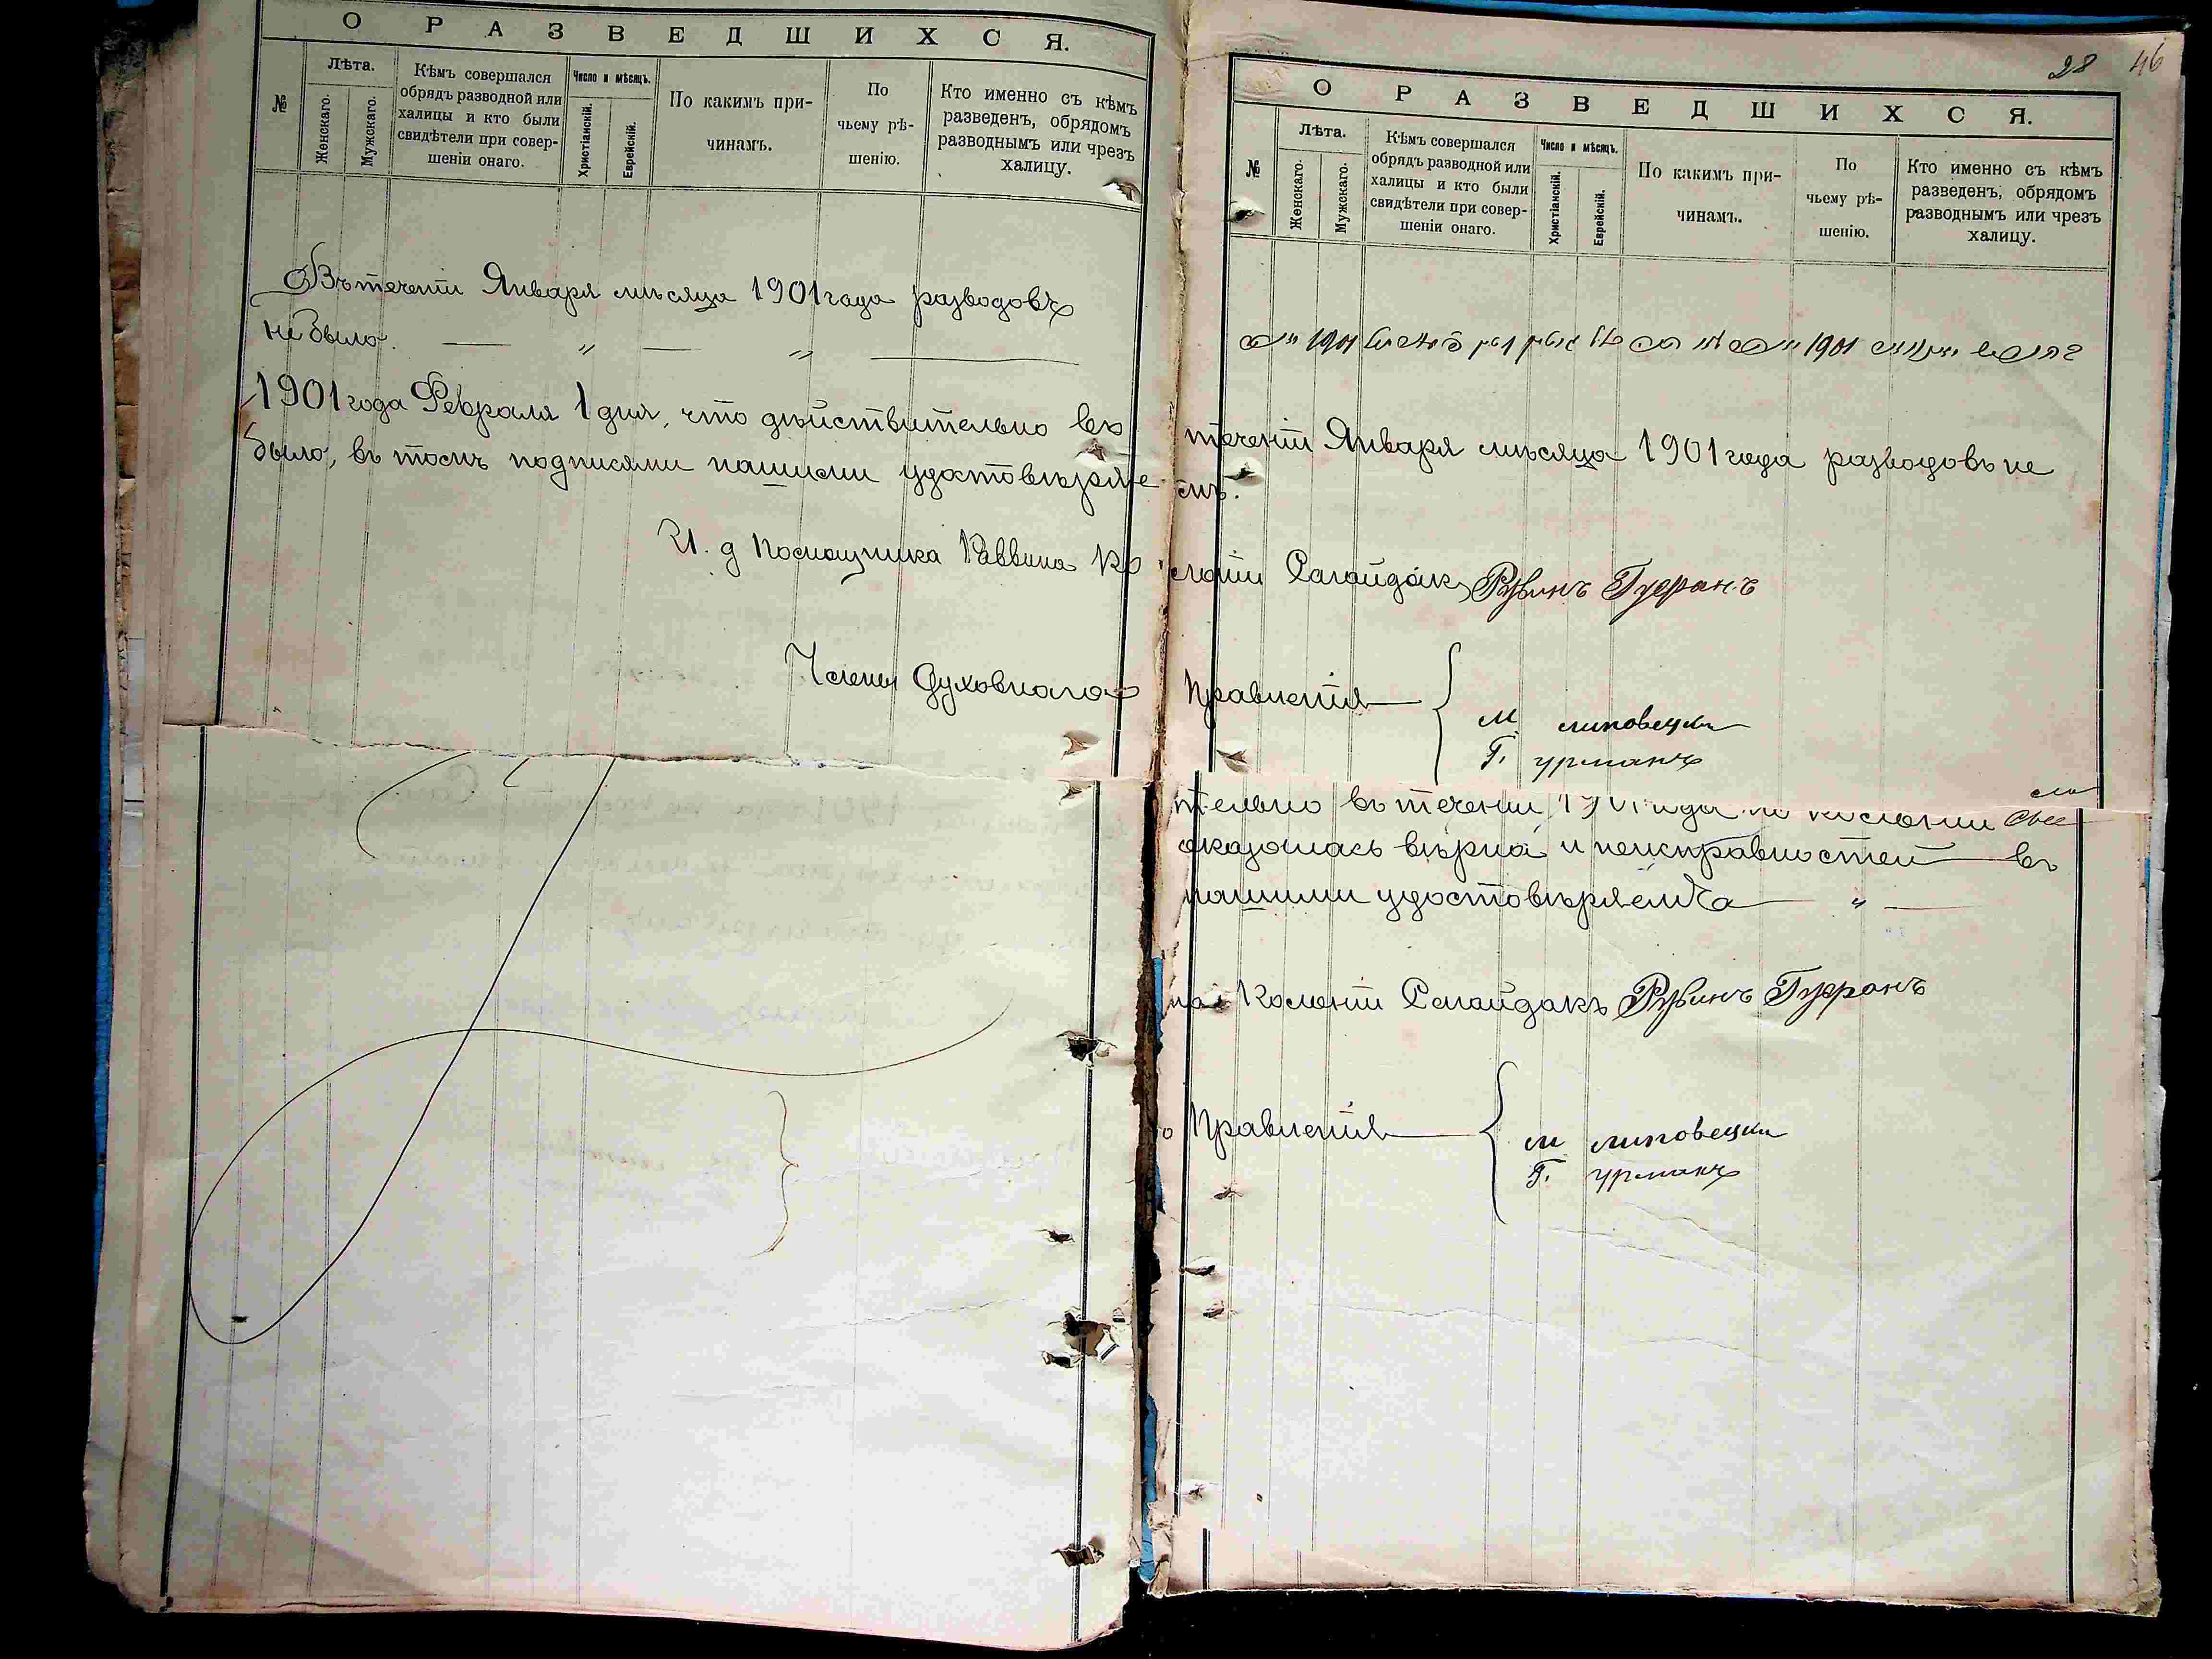 О РАЗВЕДШИХСЯ.
№
Лѣта.
Женскаго.
Мужскаго.
Кѣмъ совершался
обрядъ разводной или
халицы и кто были
свидѣтели при совер-
шеніи онаго.
Число и мѣсяцъ.
Христіанскій.
Еврейскій.
По какимъ при-
чинамъ.
По
чьему рѣ-
шенію.
Кто именно съ кѣмъ
разведенъ, обрядомъ
разводнымъ или чрезъ
халицу.
Въ теченіи Января мѣсяца 1901 года разводовъ
не было. — " — " —
1901 года Февраля 1 дня, что дѣйствительно въ
было, въ томъ подписями нашими удостовѣряе
И. д Помощника Раввина Ко
Члены Духовнаго
28 46
О РАЗВЕДШИХСЯ.
№
Лѣта.
Женскаго.
Мужскаго.
Кѣмъ совершался
обрядъ разводной или
халицы и кто были
свидѣтели при совер-
шеніи онаго.
Число и мѣсяцъ.
Христіанскій.
Еврейскій.
По какимъ при-
чинамъ.
По
чьему рѣ-
шенію.
Кто именно съ кѣмъ
разведенъ, обрядомъ
разводнымъ или чрезъ
халицу.
1901 1901
теченіи Января мѣсяца 1901 года разводовъ не
мъ.
лоніи Сагайдакъ Рувинъ
Правленія
М липовецки
Г. урманъ
тельно въ теченіи 1901 года по колоніи
оказалась вѣрна и неисправностей въ
нашими удостовѣряем — " —
на Колоніи Сагайдакъ Рувинъ
о Правленія
М липовецки
Г. урманъ